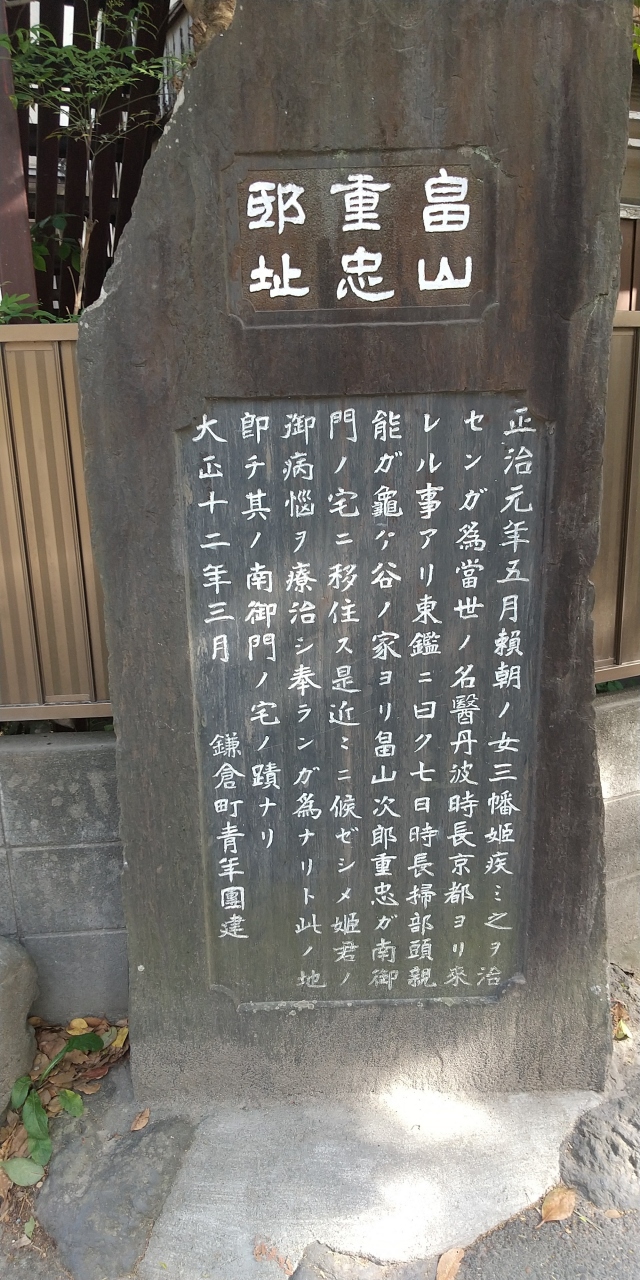 畠山
重忠
邸址
正治元年五月頼朝ノ女三幡姫疾ミ之ヲ治
センガ爲當世ノ名醫丹波時長京都ヨリ來
レル事アリ東鑑ニ曰ク七日時長掃部頭親
能ガ龜ケ谷ノ家ヨリ畠山次郎重忠ガ南御
門ノ宅ニ移住ス是近ミニ候ゼシメ姫君ノ
御病惱ヲ療治シ奉ランガ爲ナリト此ノ地
卽チ其ノ南御門ノ宅ノ蹟ナリ
大正十二年三月 鎌倉町青年團建